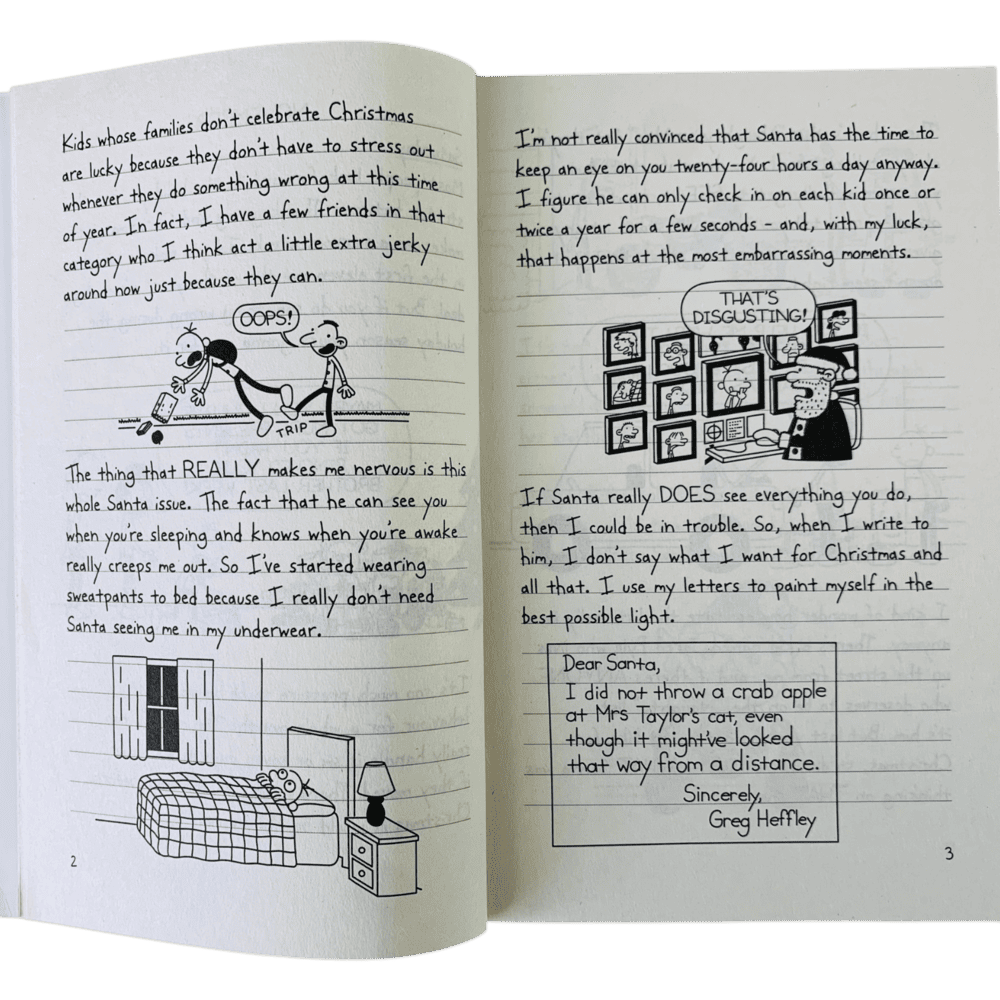 Kids whose families don't celebrate Christmas
are lucky because they don't have to stress out
whenever they do something wrong at this time
of year. In fact, I have a few friends in that
category who I think act a little extra jerky
around now just because they can.
OOPS!
TRIP
The thing that REALLY makes me nervous is this
whole Santa issue. The fact that he can see you
when you're sleeping and knows when you're awake
really creeps me out. So I've started wearing
sweatpants to bed because I really don't need
Santa seeing me in my underwear.
2
I'm not really convinced that Santa has the time to
keep an eye on you twenty-four hours a day anyway.
I figure he can only check in on each kid once or
twice a year for a few seconds - and, with my luck,
that happens at the most embarrassing moments.
THAT'S
DISGUSTING!
If Santa really DOES see everything you do,
then I could be in trouble. So, when I write to
him, I don't say what I want for Christmas and
all that. I use my letters to paint myself in the
best possible light.
Dear Santa,
I did not throw a crab apple
at Mrs Taylor's cat, even
though it might've looked
that way from a distance.
Sincerely,
Greg Heffley
3